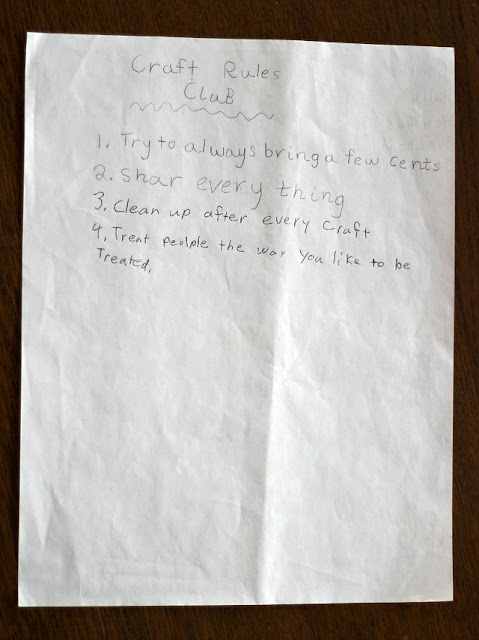 Craft Rules
CluB
1. Try to always bring a few cents
2. Shar every thing
3. Clean up after every Craft
4. Treat peolple the way you like to be
Treated.